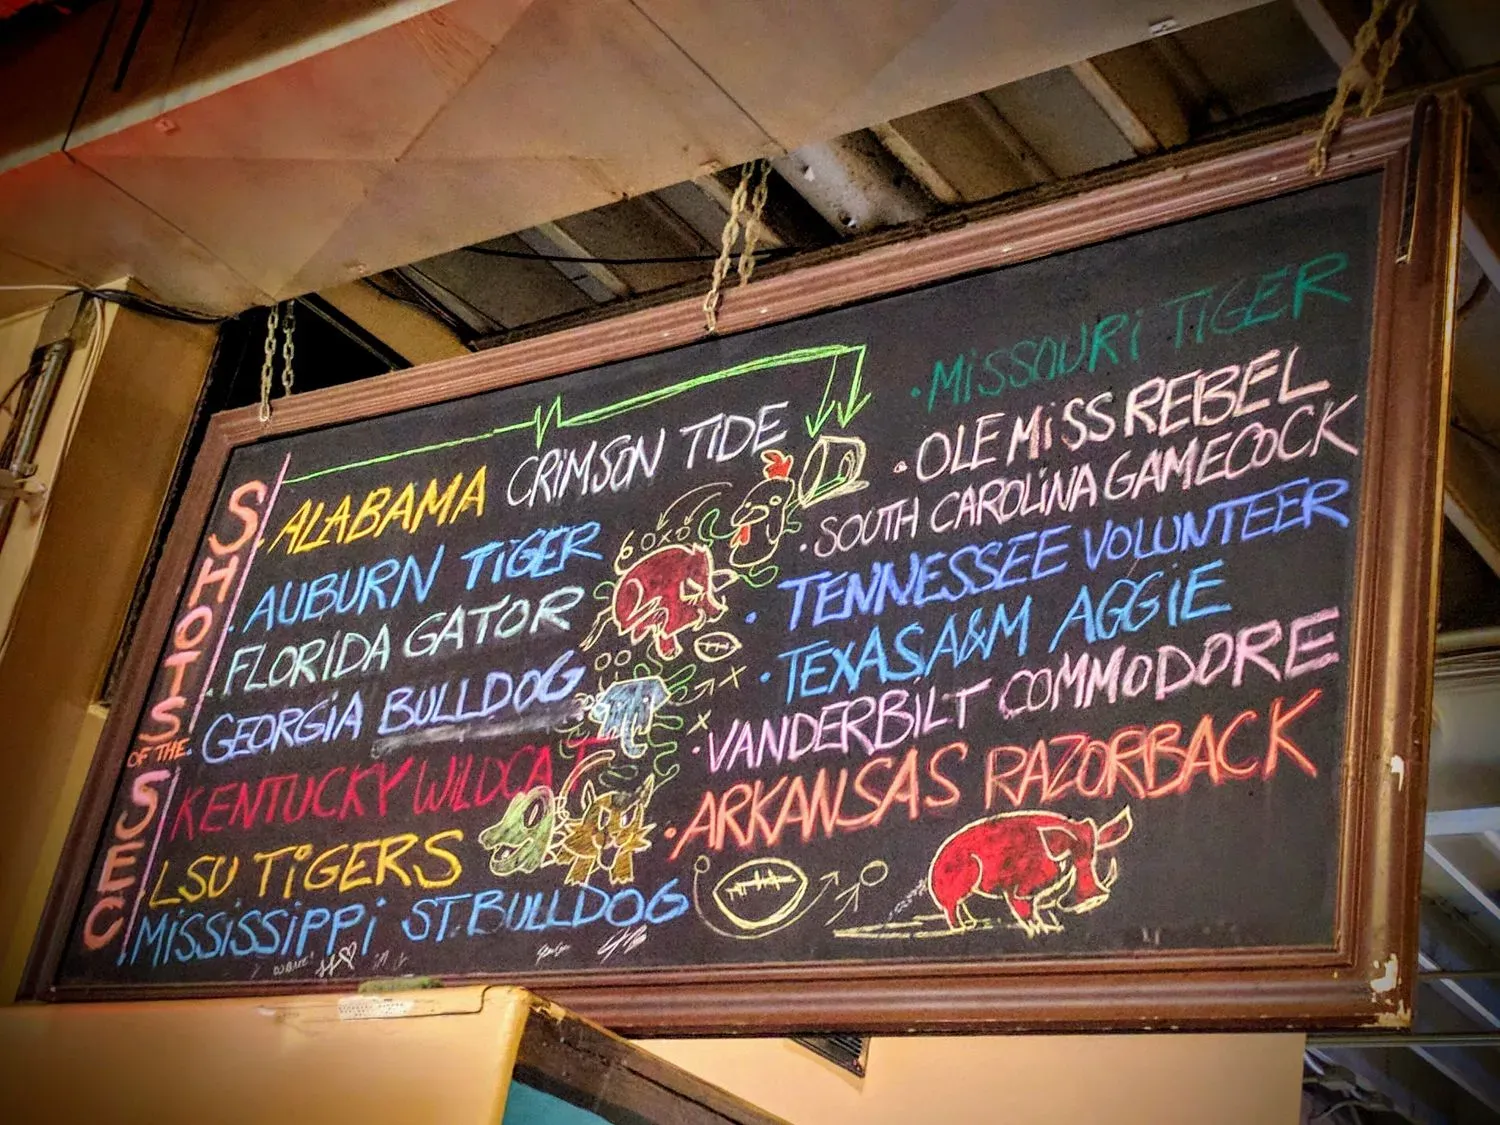 SHOTS
OF THE
SEC
ALABAMA CRIMSON TIDE
AUBURN TIGER
FLORIDA GATOR
GEORGIA BULLDOG
KENTUCKY WILDCAT
LSU TIGERS
MISSISSIPPI ST. BULLDOG
MISSOURI TIGER
OLE MISS REBEL
SOUTH CAROLINA GAMECOCK
TENNESSEE VOLUNTEER
TEXAS A&M AGGIE
VANDERBILT COMMODORE
ARKANSAS RAZORBACK